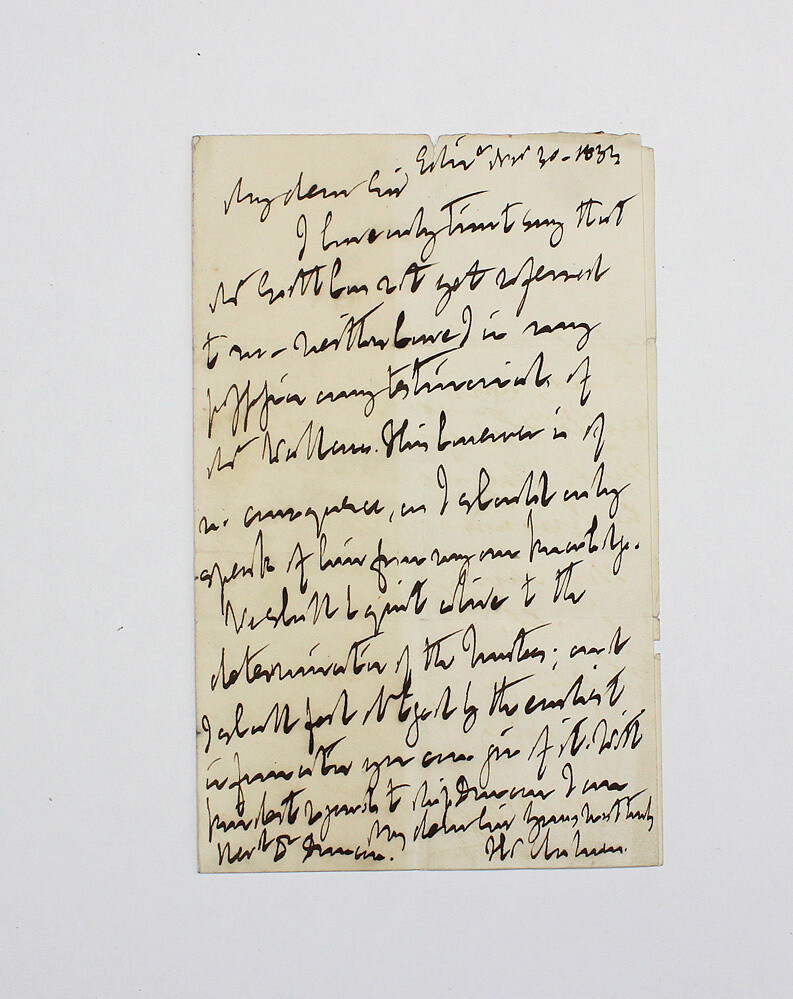 Edinr Novr 30 - 1833
My dear Sir
I have only time to say that
Mr Scott has not yet referred
to me - neither have I in my
possession any testimonials of
Mr This however is of
no consequence, as I should only
speak of him from my own knowledge.
We shall be quite alive to the
determination of the Trustees; and
I shall feel obliged by the earliest
information you can give of it. With
kindest regards to Mrs Duncan I am
My dear Sir Yours most truly
Revd Dr Duncan. Thos Chalmers.